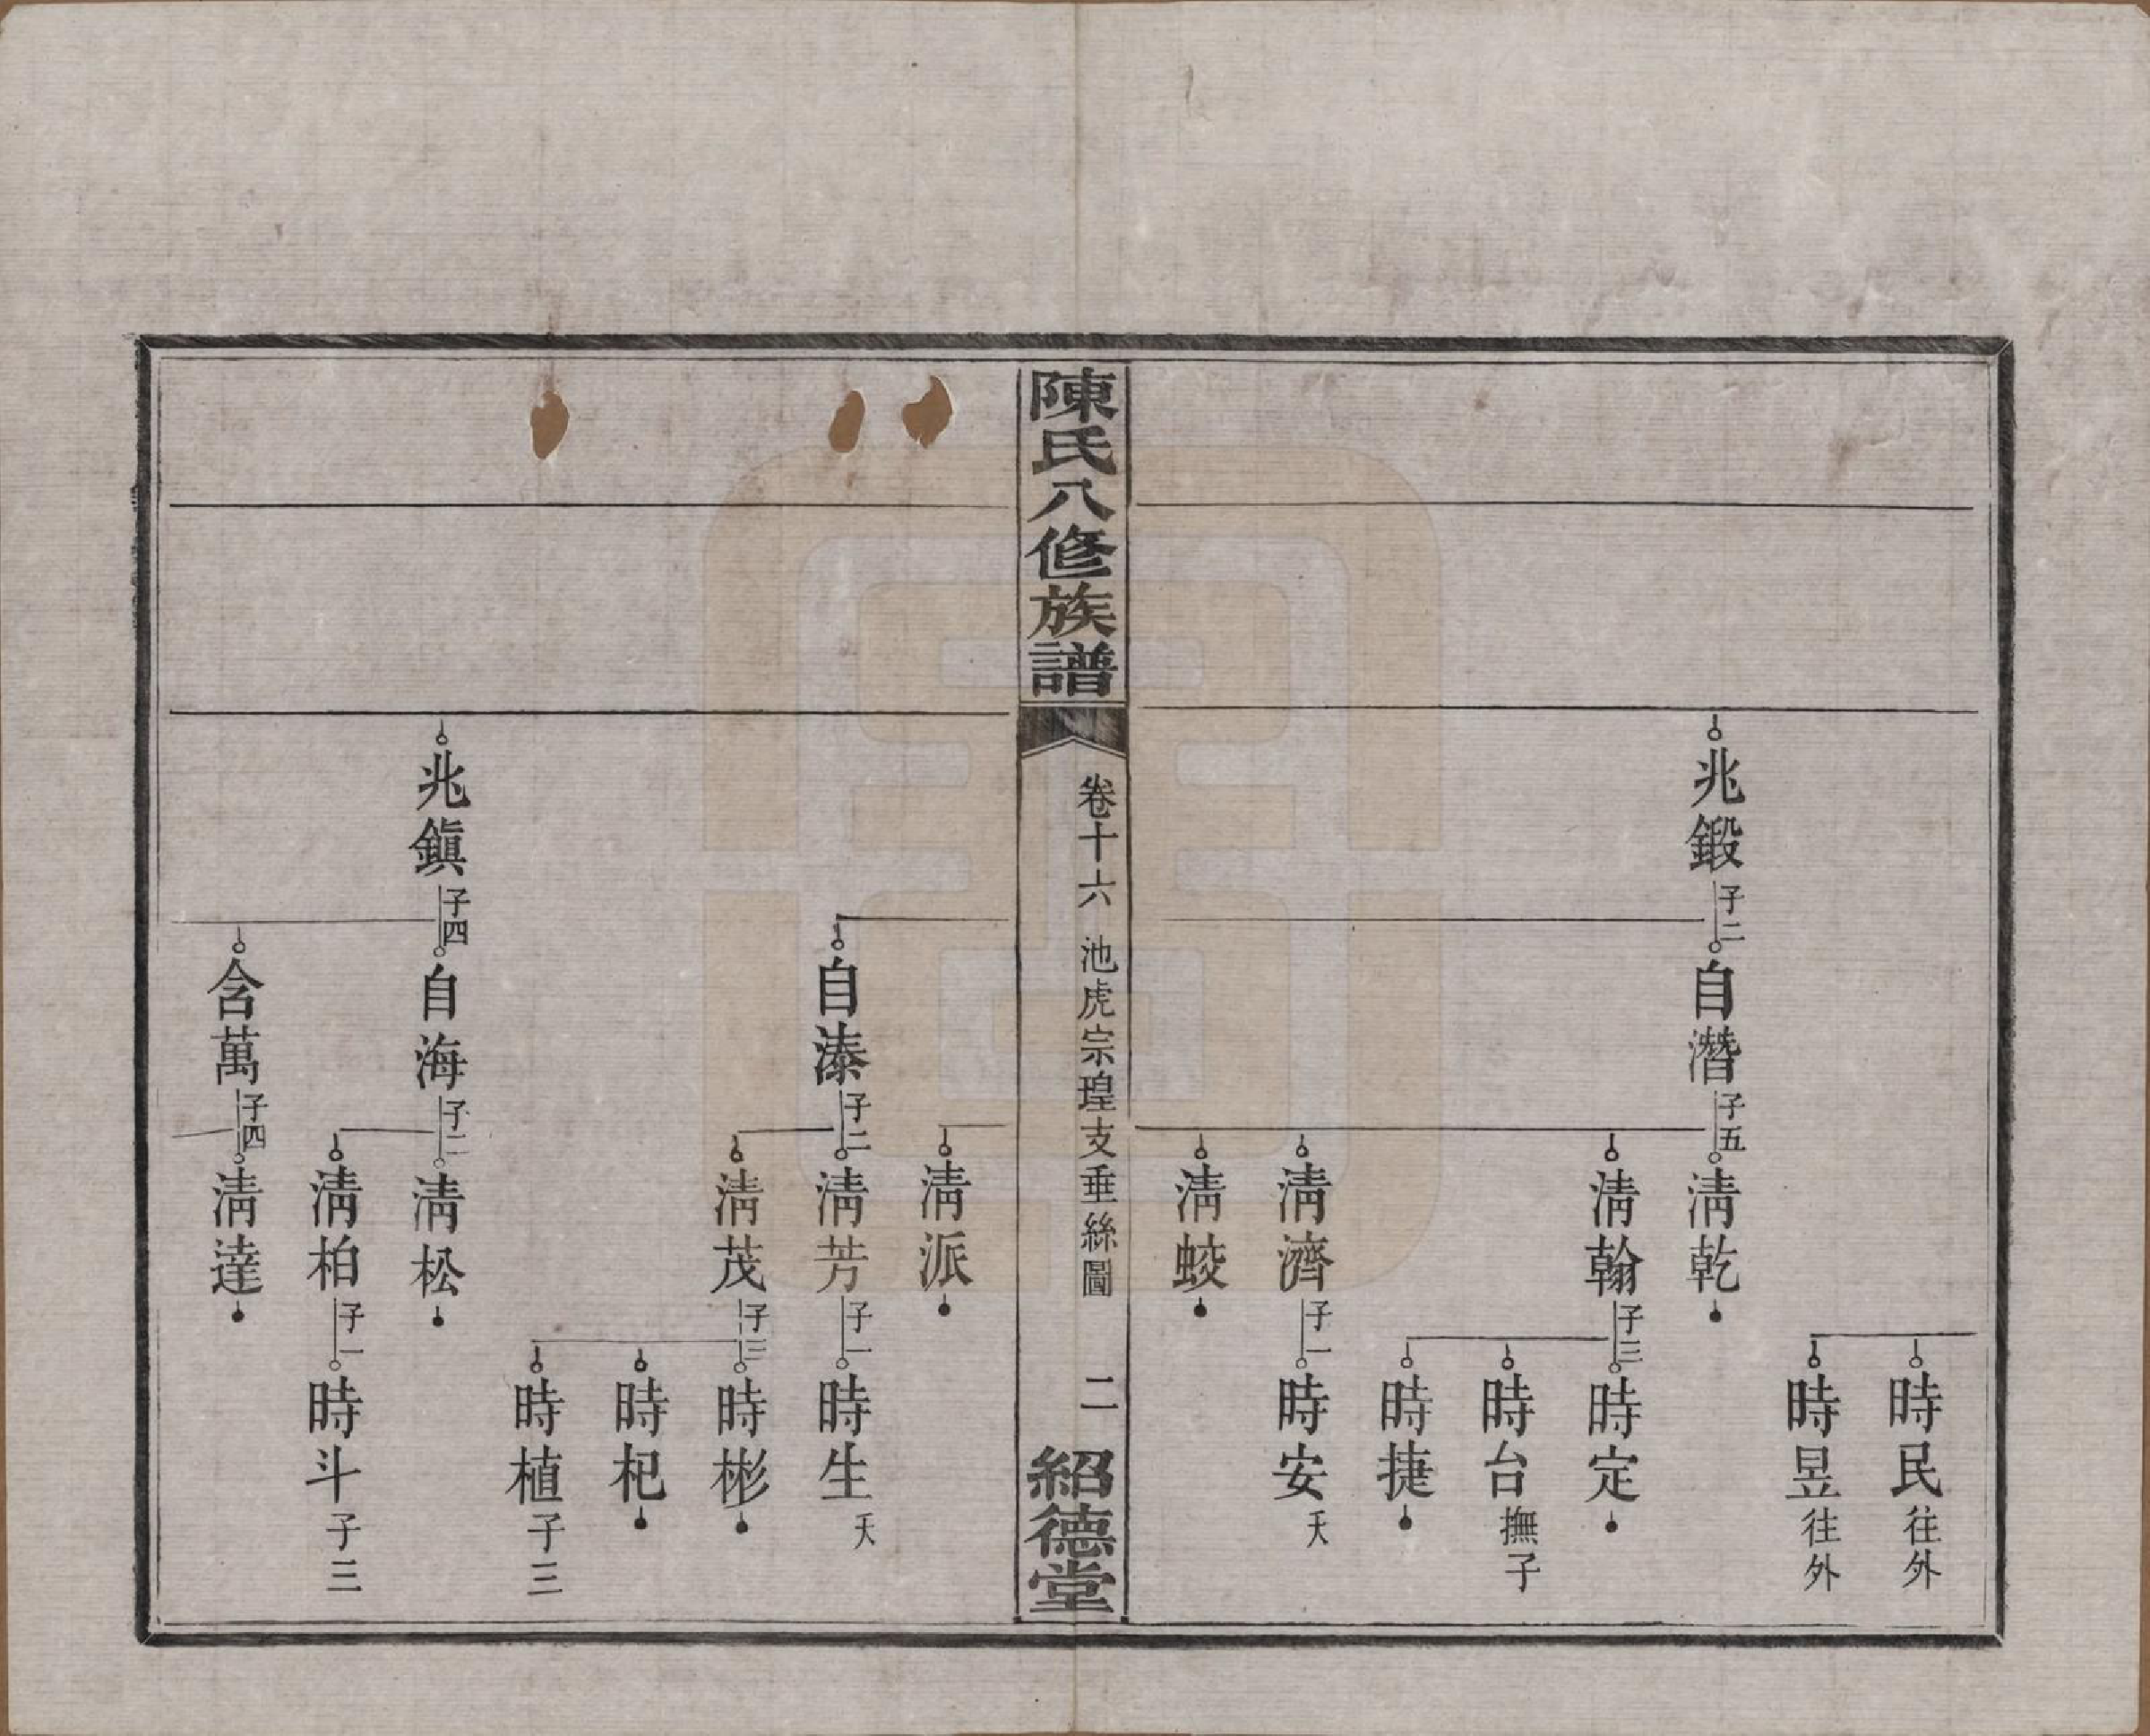 時民往外
時昱往外
兆鍛子二
自潛子五
淸乾
淸翰子三
時定
時台撫子
時捷
淸濟子一
時安夭
淸蛟
陳氏八修族譜
卷十六 池虎宗瑝支垂絲圖
二
紹德堂
淸派
自溙子二
淸芳子一
時生夭
淸茂子三
時彬
時杞
時植子三
兆鎭子四
自海子二
淸松
淸柏子一
時斗子三
含萬子四
淸達